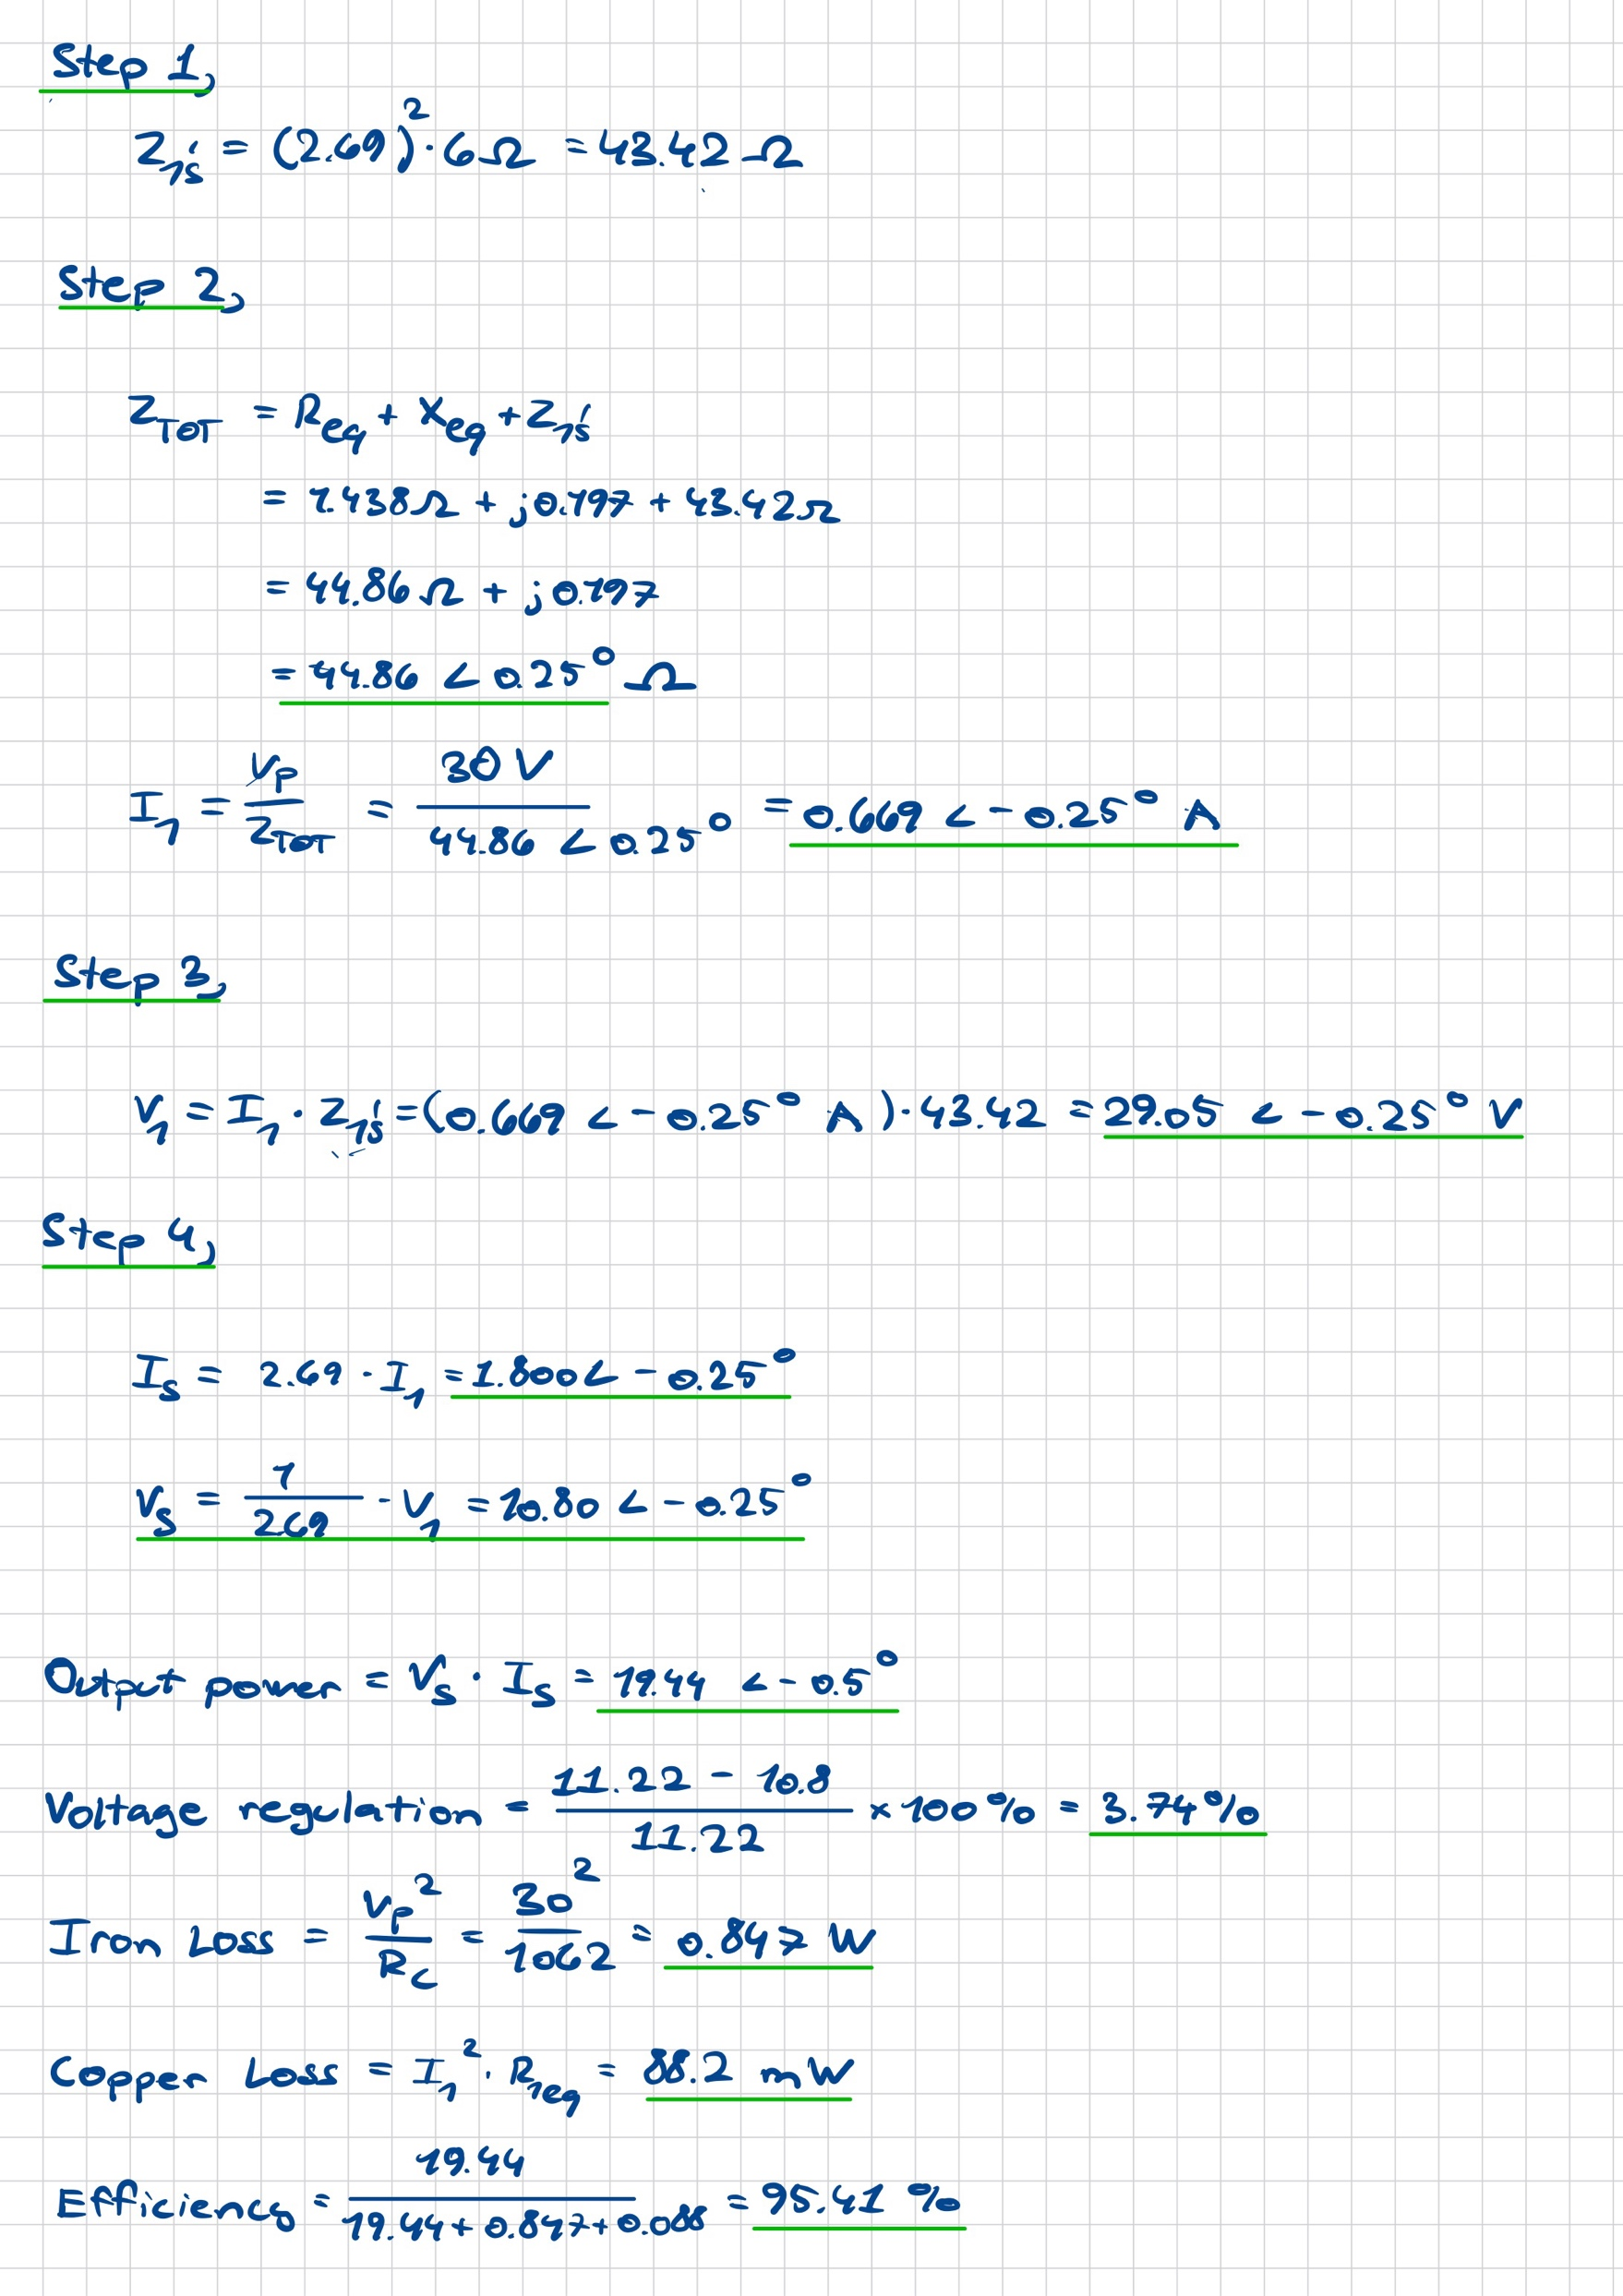 Step 1,
Z₁s' = (2.69)² · 6 Ω = 43.42 Ω
Step 2,
Z_TOT = R_eq + X_eq + Z₁s'
= 1.438 Ω + j0.197 + 43.42 Ω
= 44.86 Ω + j0.197
= 44.86 ∠ 0.25° Ω
I₁ = Vp / Z_TOT = 30 V / 44.86 ∠ 0.25° = 0.669 ∠ -0.25° A
Step 3,
V₁ = I₁ · Z₁s' = (0.669 ∠ -0.25° A) · 43.42 = 29.05 ∠ -0.25° V
Step 4,
Is = 2.69 · I₁ = 1.800 ∠ -0.25°
Vs = 1 / 2.69 · V₁ = 10.80 ∠ -0.25°
Output power = Vs · Is = 19.44 ∠ -0.5°
Voltage regulation = 11.22 - 10.8 / 11.22 × 100% = 3.74%
Iron Loss = Vp² / Rc = 30² / 1062 = 0.847 W
Copper Loss = I₁² · R₁eq = 88.2 mW
Efficiency = 19.44 / 19.44 + 0.847 + 0.088 = 95.41 %